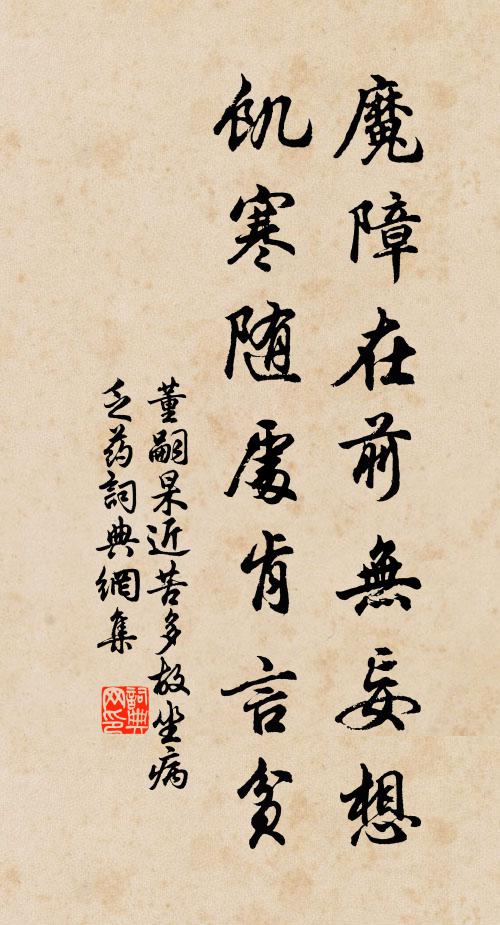 魔障在前無妄想
飢寒随處肯言貧
董嗣杲近苦多故坐病
乏药詞典網集
詞典网印